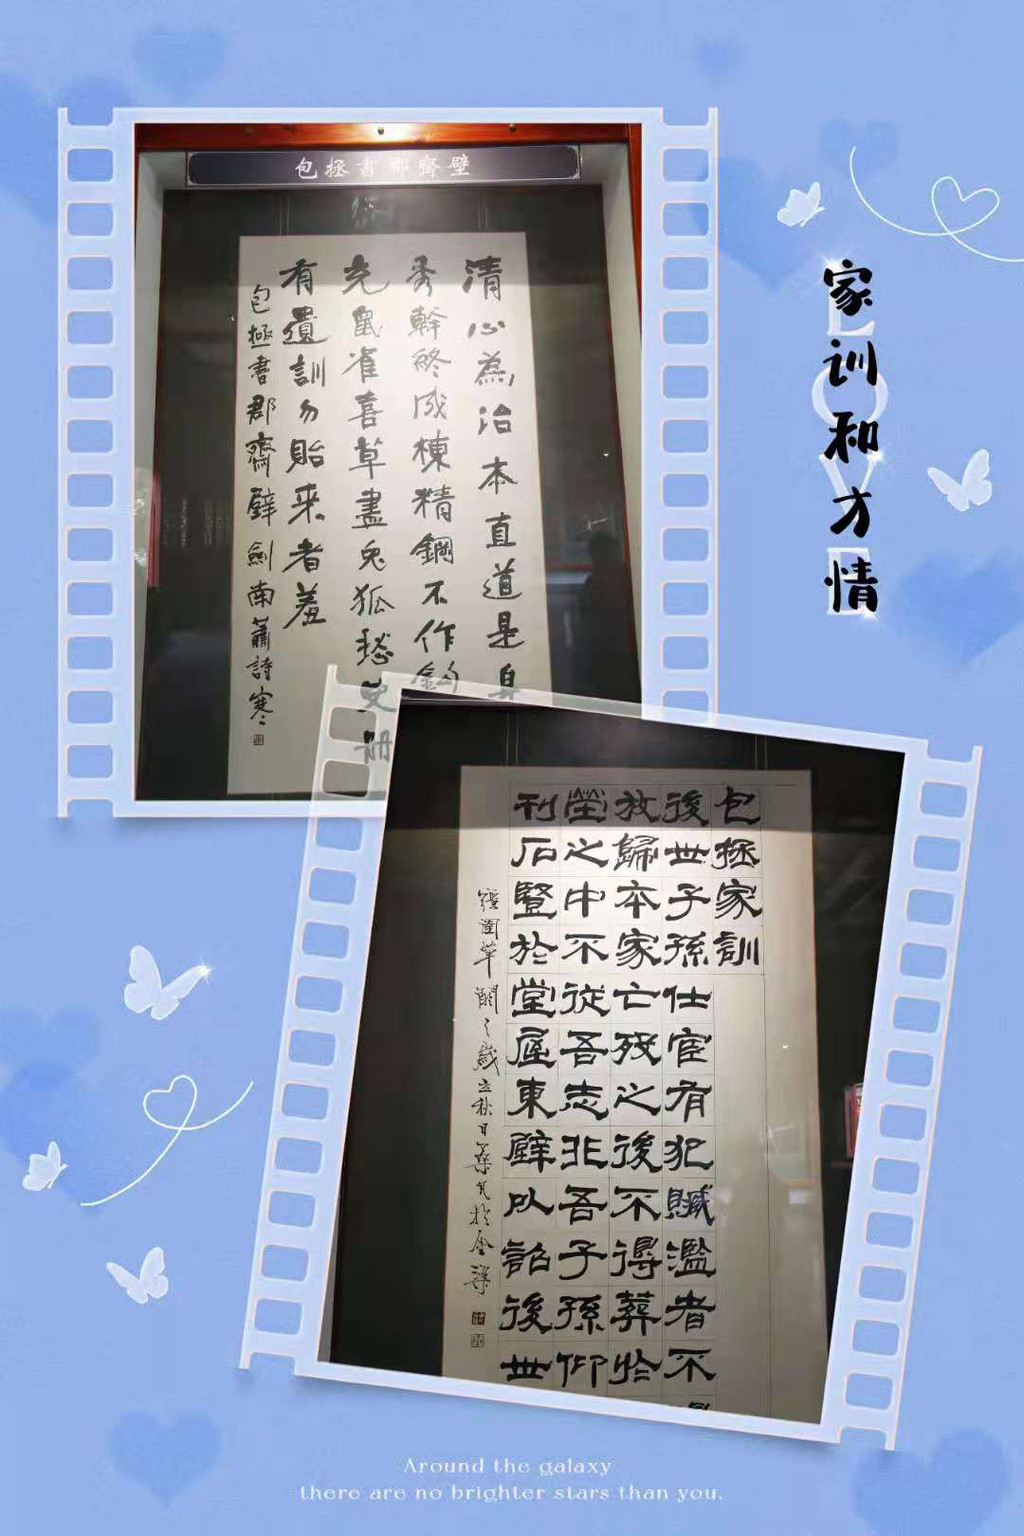 包拯書郡齊壁
清心為治本直道是身
秀幹終成棟精鋼不作鈎
充鼠雀喜草盡兔狐愁史冊
有遺訓勿貽来者羞
包拯書郡齋壁 劍南蕭詩寒
LOVE
家训和才情
包拯家訓
後世子孫仕宦有犯贓濫者不
放歸本家亡殁之後不得葬於
塋之中不從吾志非吾子孫仰
刊石豎於堂屋東壁以詔後世
Around the galaxy
there are no brighter stars than you.